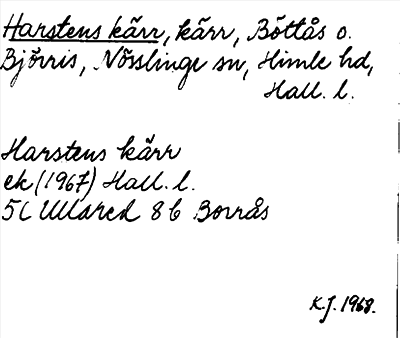 Harstens kärr, kärr, Böttås o.
Björris, Nösslinge sn, Himle hd,
Hall. l.
Harstens kärr
ek (1967) Hall. l.
5C Ullared 8b Borrås
K.J. 1968.